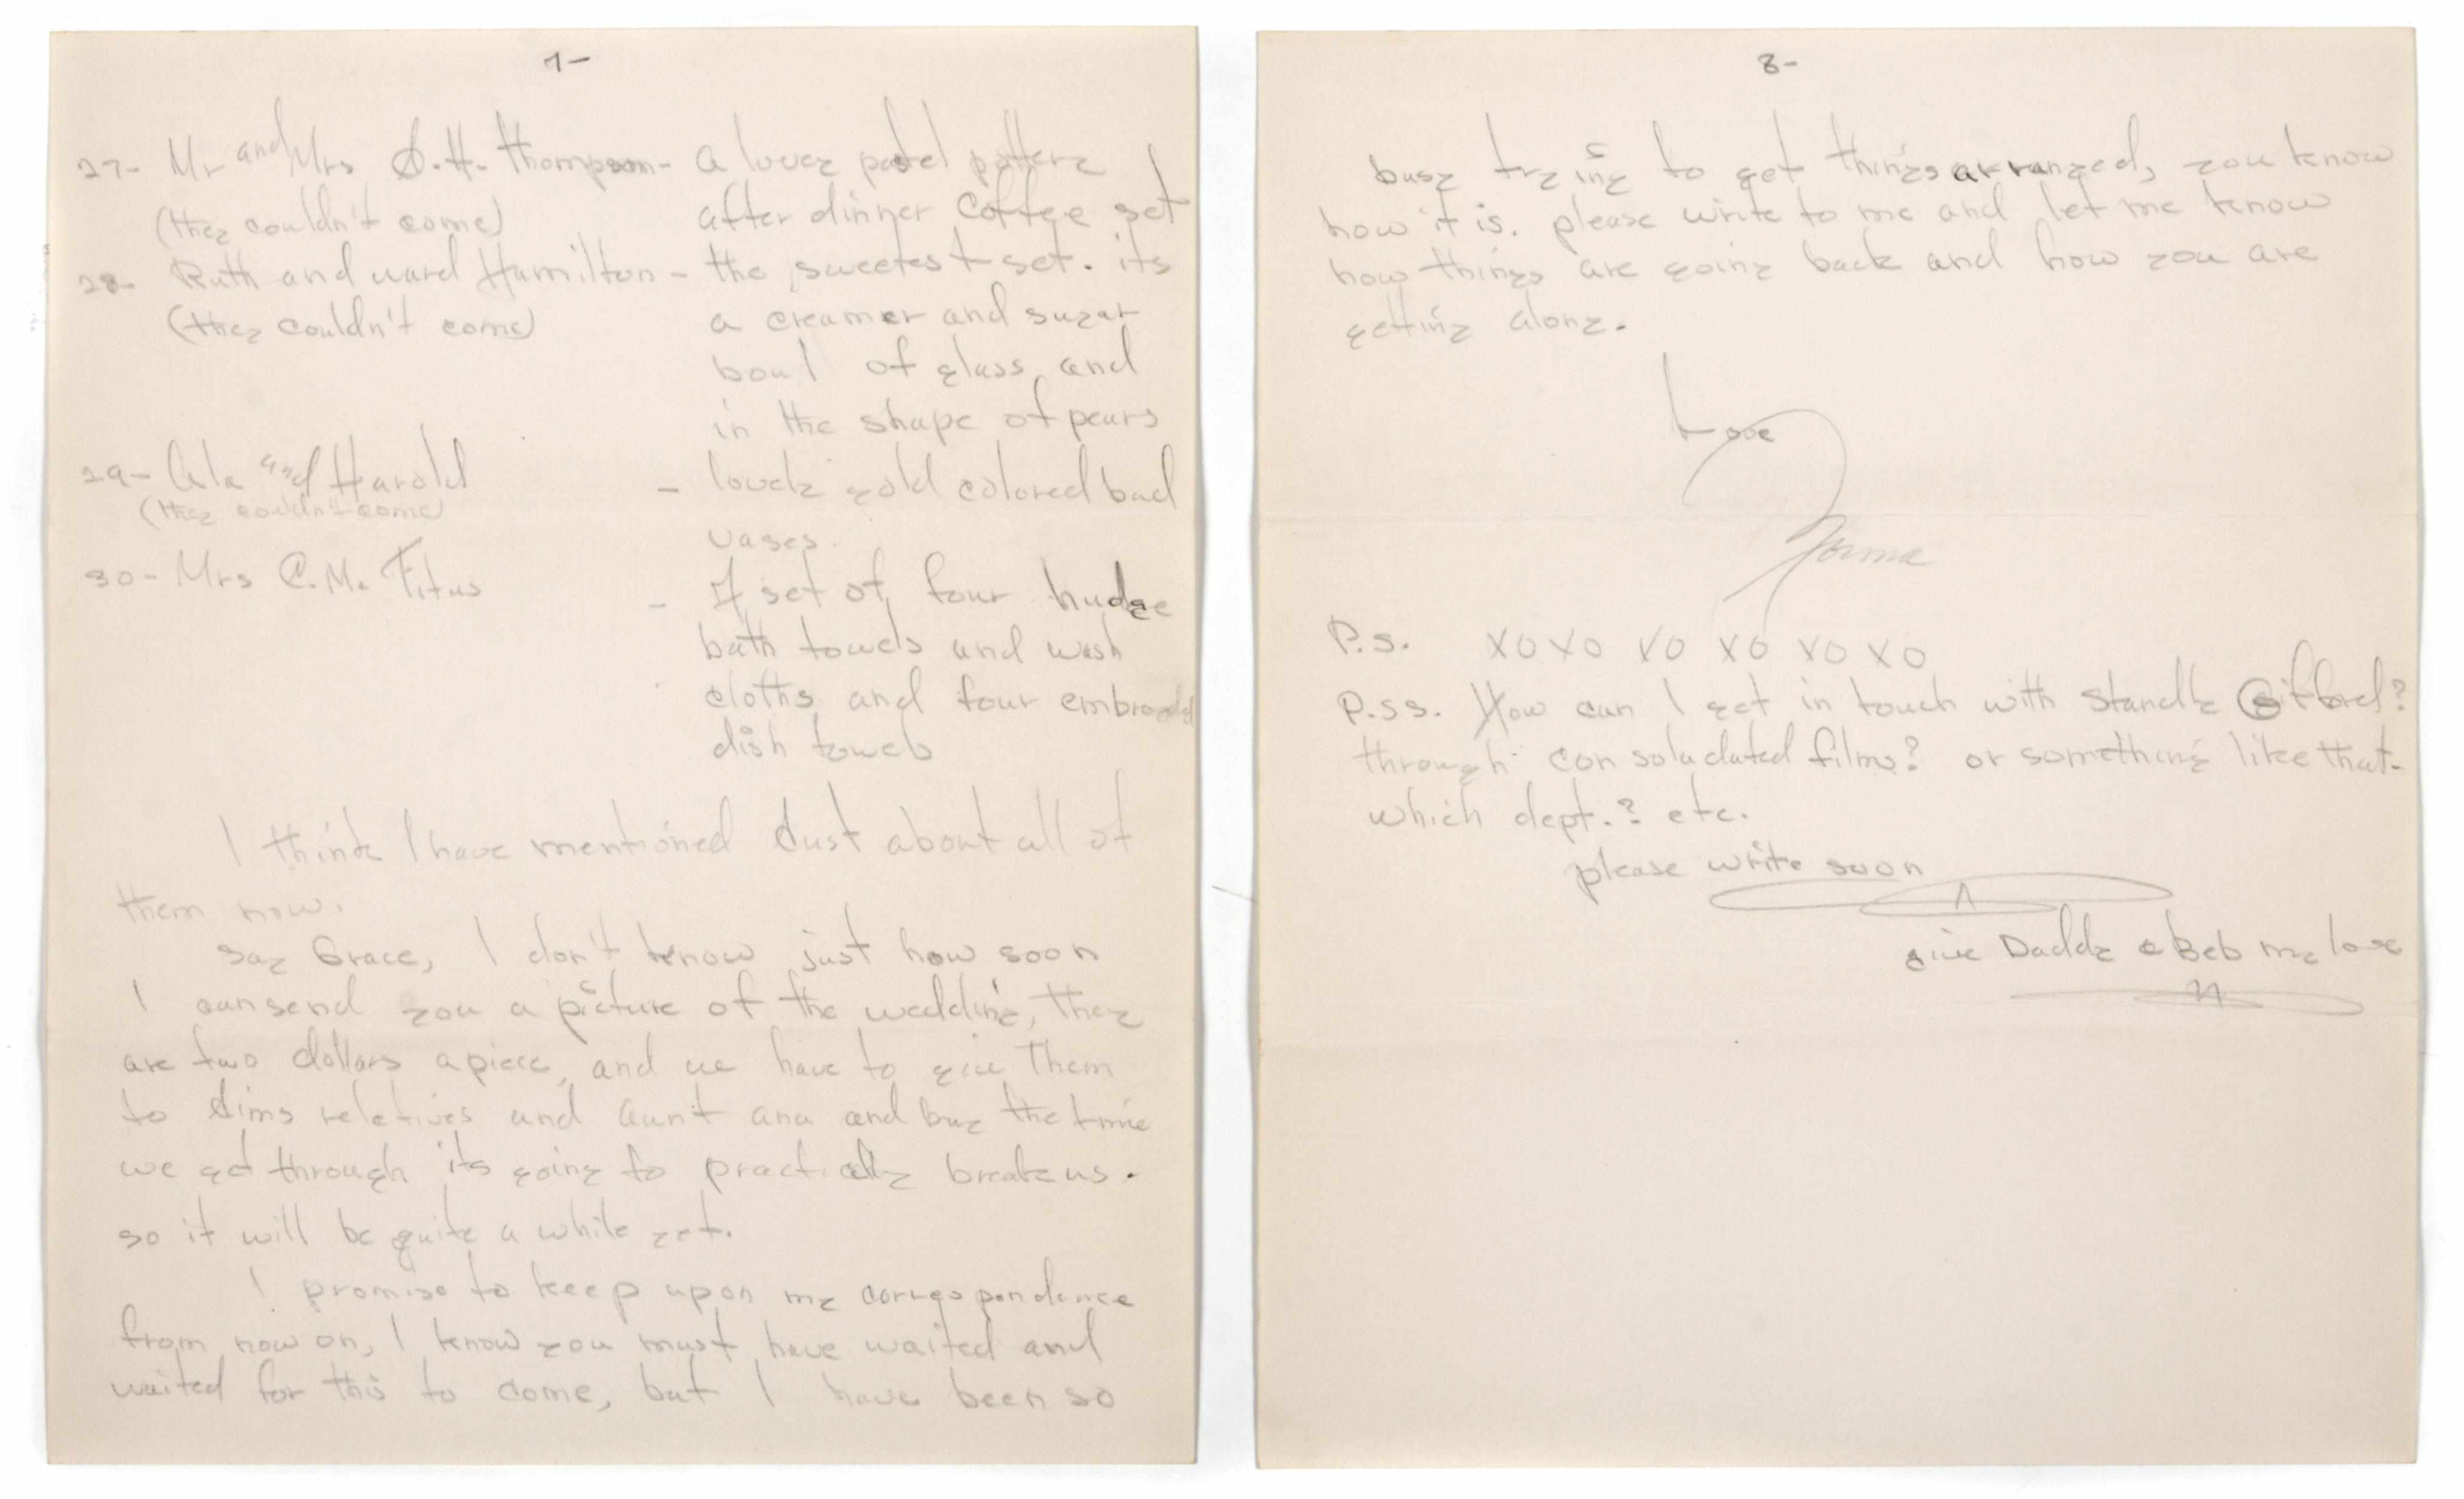 7-
27- Mr and Mrs S.H. Thompson- a lovey pastel pottery
(they couldn't come) after dinner coffee set
28- Ruth and ward Hamilton - the sweetest set. its
(they couldn't come) a creamer and sugar
bowl of glass, and
in the shape of pears
29- and Harold - lovely gold colored bud
(they couldn't come)
vases.
30- Mrs C.M. Titus - A set of four hudge
bath towels and wash
cloths and four
dish towels
I think I have mentioned Just about all of
them now.
say Grace, I don't know just how soon
I can send you a picture of the wedding, they
are two dollars apiece, and we have to give them
to Jims reletives and Aunt ana and buy the time
we get through its going to practically break us.
so it will be quite a while yet.
I promise to keep upon my correspondence
from now on, I know you must have waited and
waited for this to come, but I have been so
8-
busy trying to get things arranged, you know
how it is. please write to me and let me know
how things are going back and how you are
getting along.
Love
Norma
P.S. XO XO XO XO XO XO
P.SS. How can I get in touch with Standly Gifford?
through consoladated films? or something like that.
which dept.? etc.
please write soon
give Daddy & Beb my love